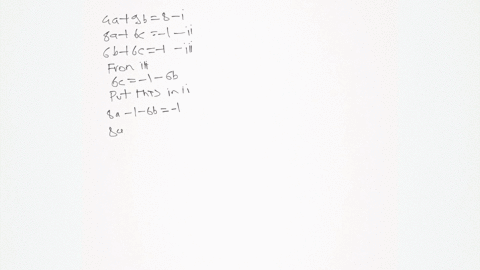 4a+9b=8-i
8a+6c=-1-ii
6b+6c=-1-iii
From iii
6c=-1-6b
Put this in ii
8a-1-6b=-1
8a